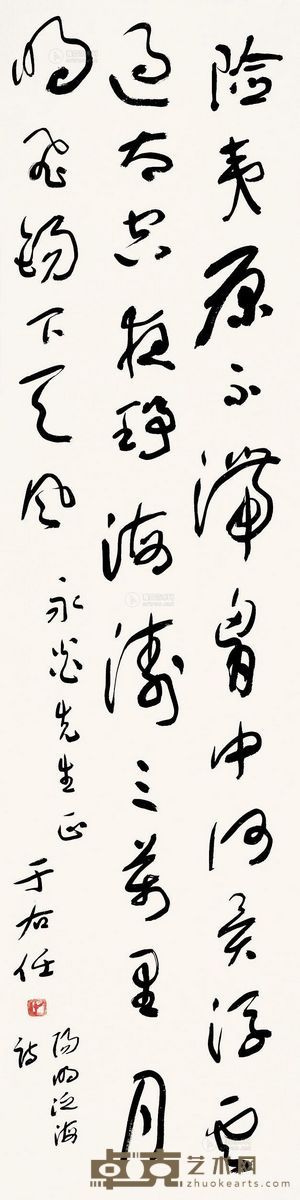 险夷原不滞胸中何异浮云
过太空夜静海涛三万里月
明飞锡下天风
永炎先生正
于右任
阳明泛海
诗
卓克艺术网
zhuokearts.com